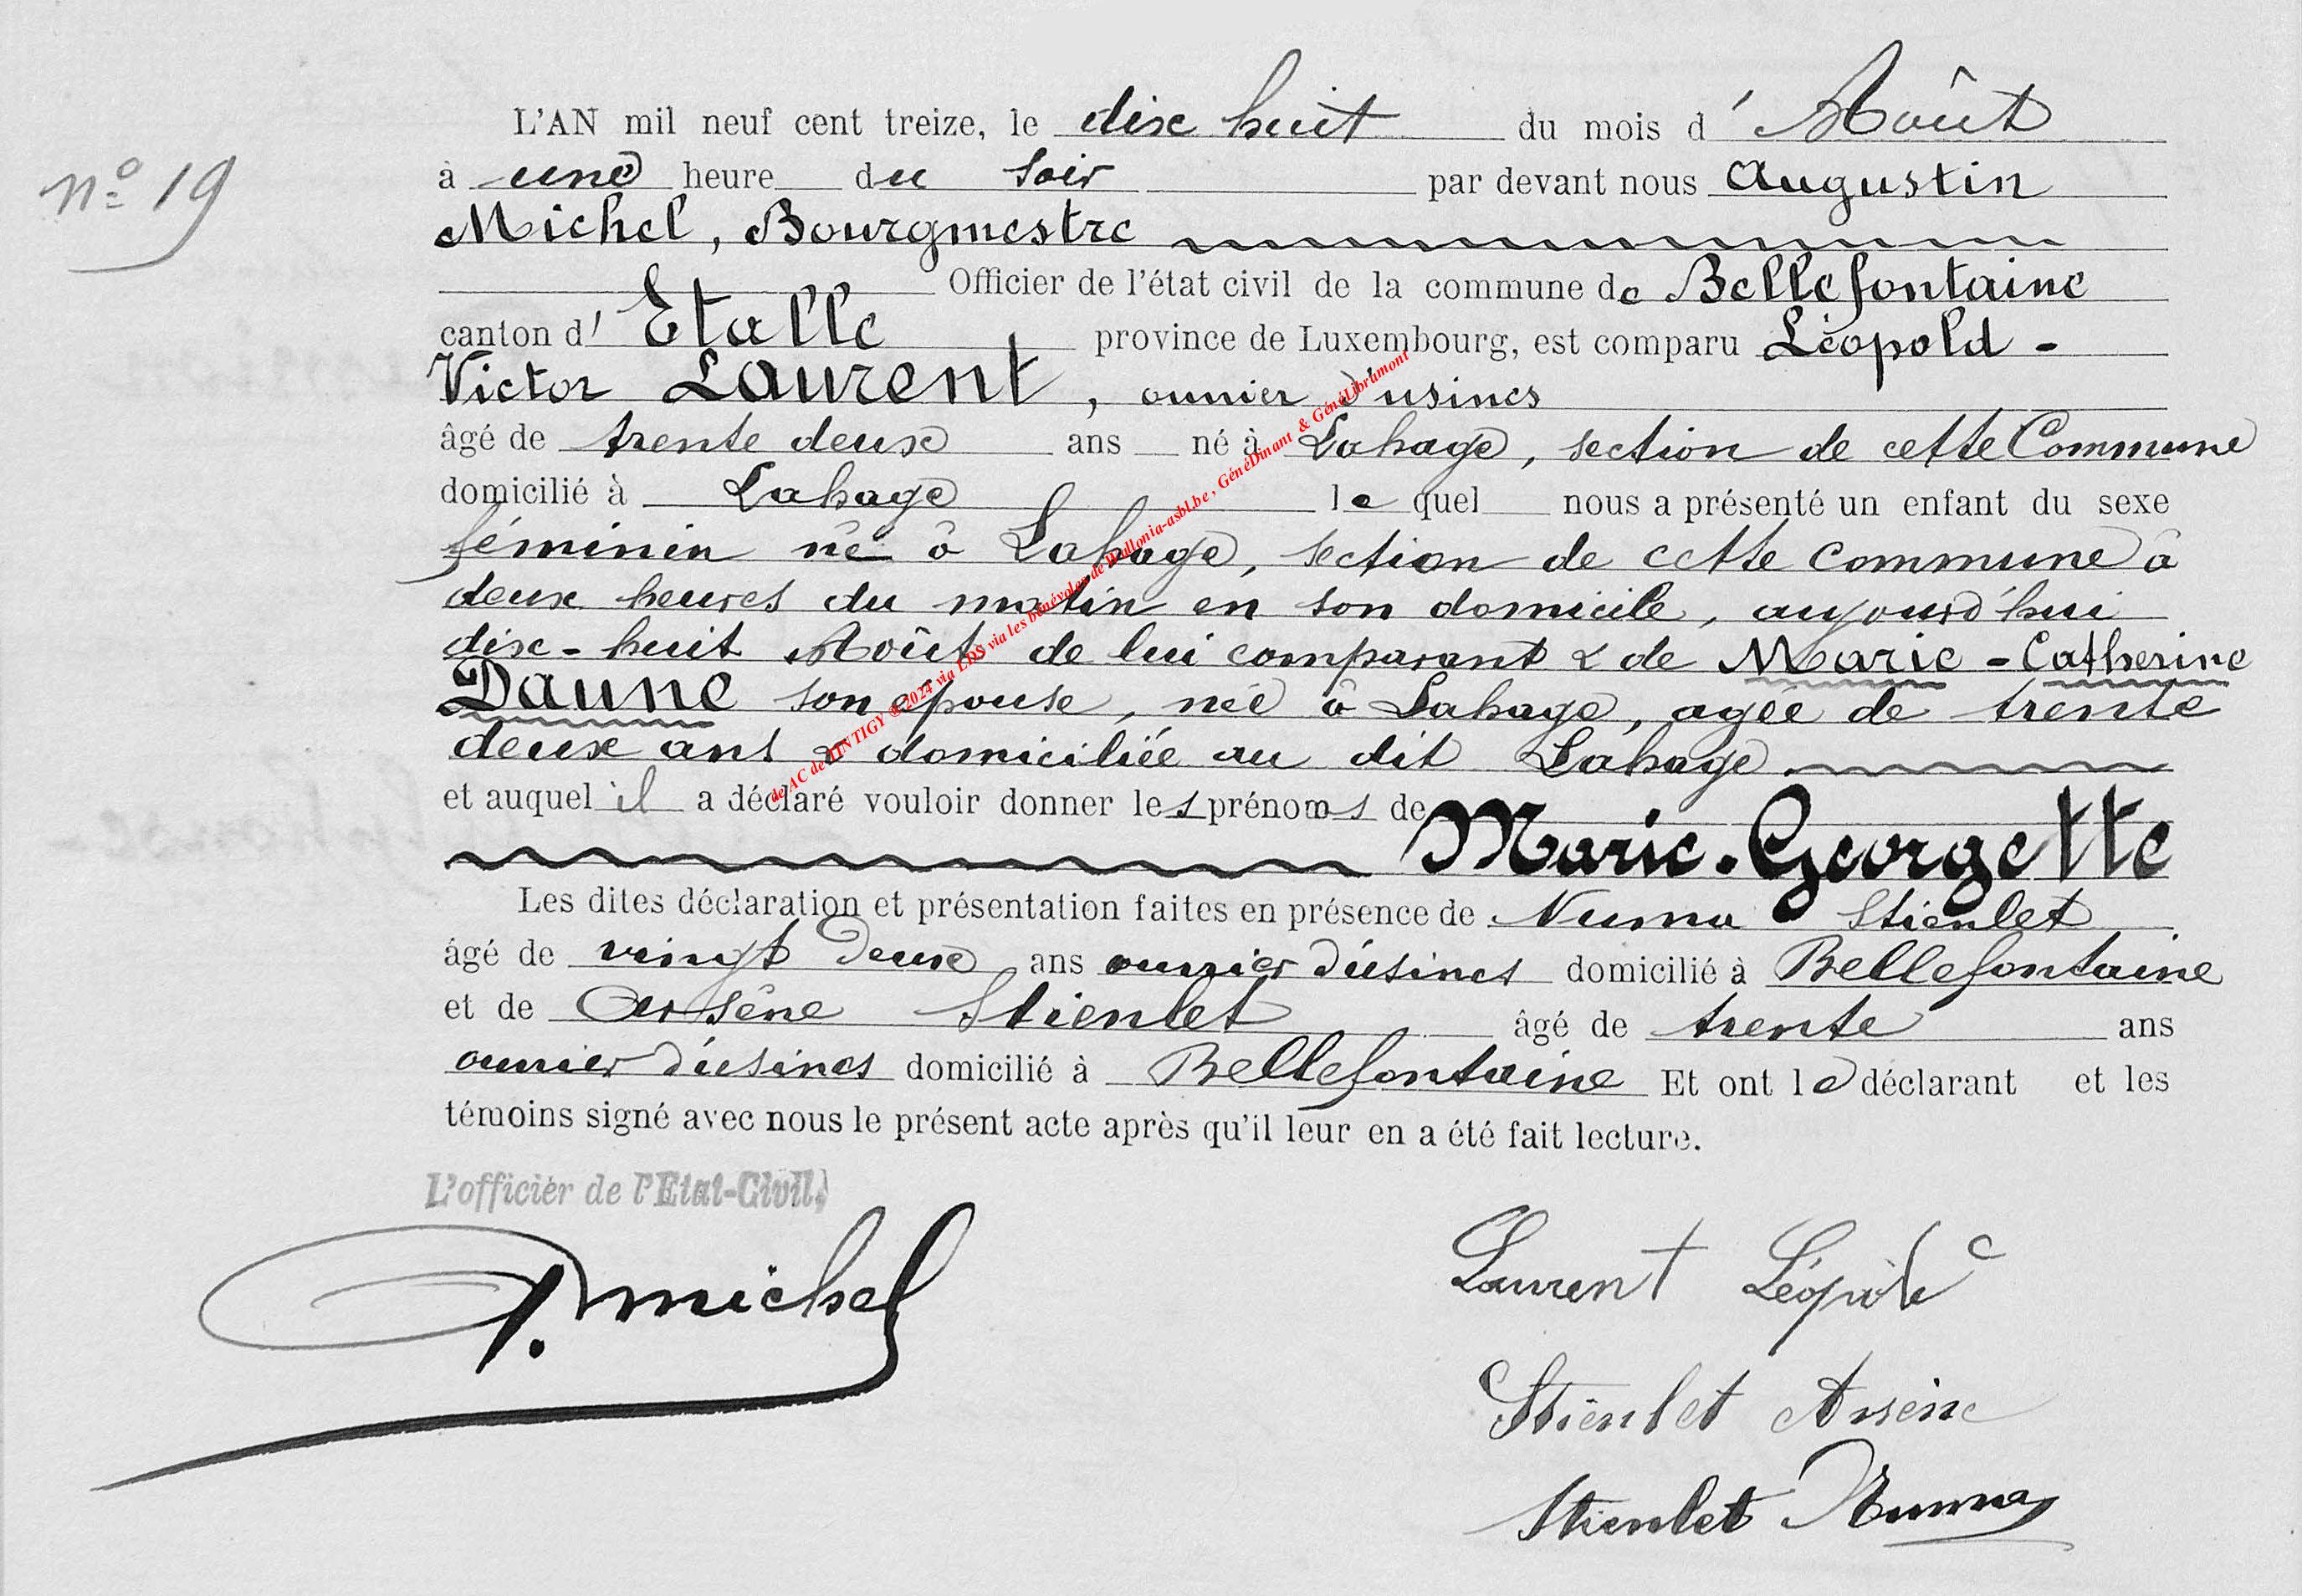 L'AN mil neuf cent treize, le dix huit du mois d' Août
n° 19
à une heure du soir par devant nous Augustin
Michel, Bourgmestre
Officier de l'état civil de la commune de Bellefontaine
canton d' Etalle province de Luxembourg, est comparu Léopold -
Victor Laurent, ouvrier d'usines
âgé de trente deux ans né à Lahage, section de cette Commune
domicilié à Lahage le quel nous a présenté un enfant du sexe
féminin né à Lahage, section de cette commune à
deux heures du matin en son domicile, aujourd'hui
dix-huit Août de lui comparant & de Marie-Catherine
Daune son épouse, née à Lahage, agée de trente
deux ans & domiciliée au dit Lahage
et auquel il a déclaré vouloir donner les prénoms de
Marie-Georgette
Les dites déclaration et présentation faites en présence de Numa Stienlet
âgé de vingt deux ans ouvrier d'usines domicilié à Bellefontaine
et de Arsène Stienlet âgé de trente ans
ouvrier d'usines domicilié à Bellefontaine Et ont le déclarant et les
témoins signé avec nous le présent acte après qu'il leur en a été fait lecture.
L'officier de l'Etat-Civil,
A. Michel
Laurent Léopold
Stienlet Arsène
Stienlet Numa
de AC de TINTIGY @ 2024 via LDS via les bénévoles de Wallonia-asbl.be, GénéDinant & GénéLibramont